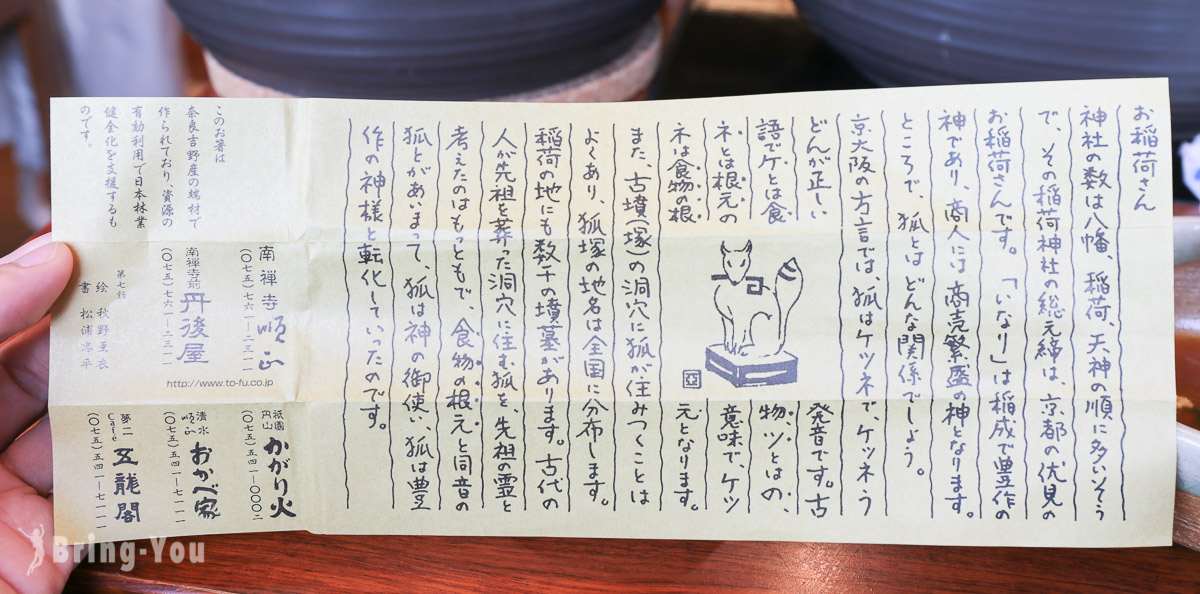 お稲荷さん
神社の数は八幡、稲荷、天神の順に多いそう
で、その稲荷神社の総元締は、京都の伏見の
お稲荷さんです。「いなり」は稲成で豊作の
神であり、商人には商売繁盛の神となります。
ところで、狐とはどんな関係でしょう。
京大阪の方言では、狐はケツネで、ケツネう
どんが正しい発音です。古
語でケとは食物、ツとはの、
ネとは根元の意味で、ケツ
ネは食物の根元となります。
また、古墳(塚)の洞穴に狐が住みつくことは
よくあり、狐塚の地名は全国に分布します。
稲荷の地にも数千の墳墓があります。古代の
人が先祖を葬った洞穴に住む狐を、先祖の霊と
考えたのはもっともで、食物の根元と同音の
狐とがあいまって、狐は神の御使い、狐は豊
作の神様と転化していったのです。
このお箸は
奈良吉野産の端材で
作られており、資源の
有効利用で日本林業
健全化を支援するも
のです。
南禅寺 順正
(〇七五)七六一-二三一一
南禅寺前 丹後屋
(〇七五)七六一-二三一一
http://www.to-fu.co.jp
第七話
絵 秋野亜衣
書 松浦忠平
祇園円山 かがり火
(〇七五)五四一-〇〇〇二
清水順正 おかべ家
(〇七五)五四一-七一一一
夢二Café 五龍閣
(〇七五)五四一-七一一一
Bring-You